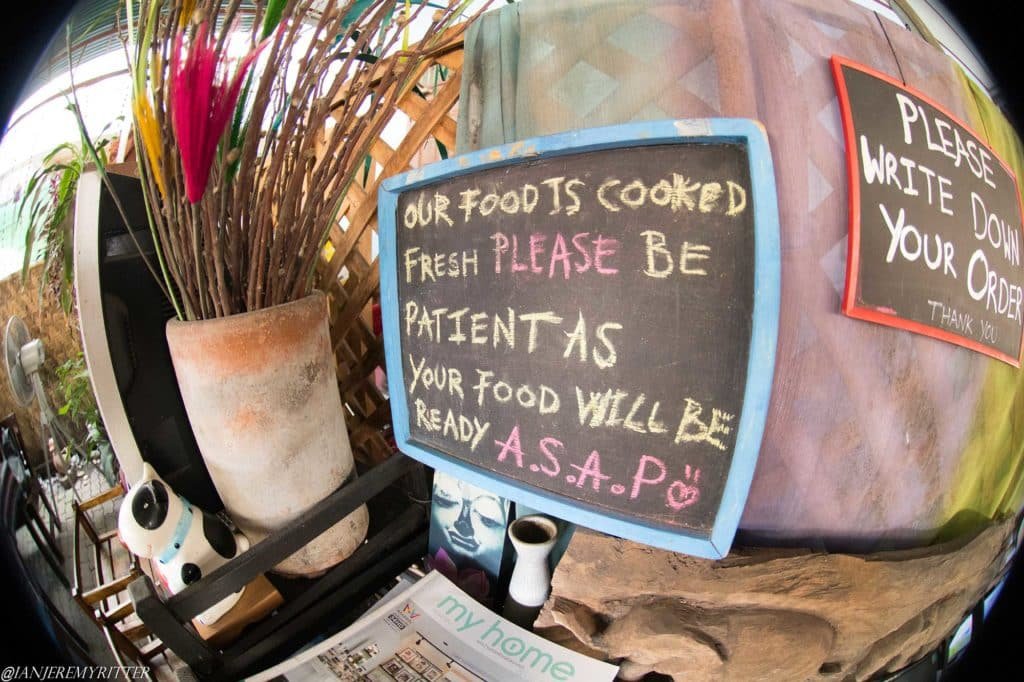 OUR FOOD IS COOKED
FRESH PLEASE BE
PATIENT AS
YOUR FOOD WILL BE
READY A.S.A.P
PLEASE
WRITE DOWN
YOUR ORDER
THANK YOU
my home
@IANJEREMYRITTER